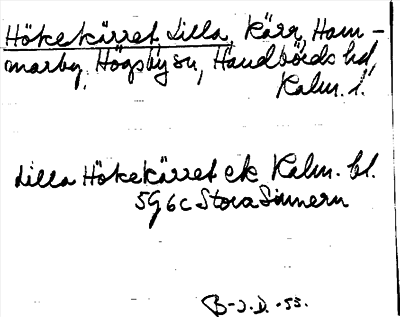 Hökekärret, Lilla, Kärr, Ham-
marby, Högsby sn, Handbörds hd,
Kalm. l.
Lilla Hökekärret ek Kalm. bl.
5G6c Stora Sinnern
B-J.D. -55.